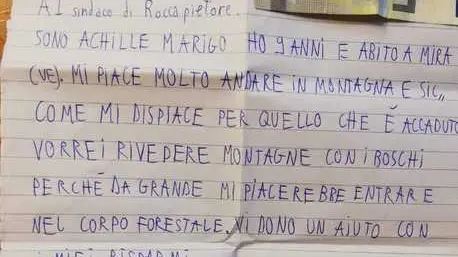 Al sindaco di Roccapietore.
SONO ACHILLE MARIGO HO 9 ANNI E ABITO A MIRA
(VE). MI PIACE MOLTO ANDARE IN MONTAGNA E SIC,,
COME MI DISPIACE PER QUELLO CHE È ACCADUTO
VORREI RIVEDERE MONTAGNE CON I BOSCHI
PERCHÉ DA GRANDE MI PIACEREBBE ENTRARE
NEL CORPO FORESTALE. VI DONO UN AIUTO CON
I MIEI RISPARMI